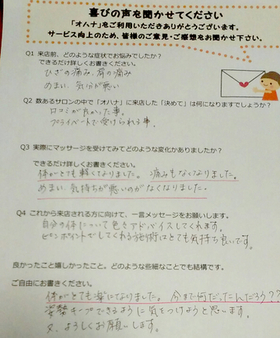 喜びの声を聞かせてください
「オハナ」をご利用いただきありがとうございます。
サービス向上のため、皆様のご意見・ご感想をお聞かせ下さい。
Q1 来店前、どのような症状でお悩みでしたか？
できるだけ詳しくお書きください。
ひざの痛み、肩の痛み
めまい、気分が悪い
Q2 数あるサロンの中で「オハナ」に来店した「決めて」は何になりますでしょうか？
口コミが良かった事。
プライベートで受けられる事。
Q3 実際にマッサージを受けてみてどのような変化がありましたか？
できるだけ詳しくお書きください。
体がとても軽くなりました。痛みもなくなりました。
めまい、気持ちが悪いのがなくなりました。
Q4 これから来店される方に向けて、一言メッセージをお願いします。
自分の体について色々アドバイスしてくれます。
ピンポイントでしてくれる施術はとても気持ち良いです。
良かったこと嬉しかったこと。どのような些細なことでも結構です。
ご自由にお書きください。
体がとても楽になりました。今まで何だったんだろう??
姿勢キープできるように気をつけようと思います。
又、よろしくお願いします。